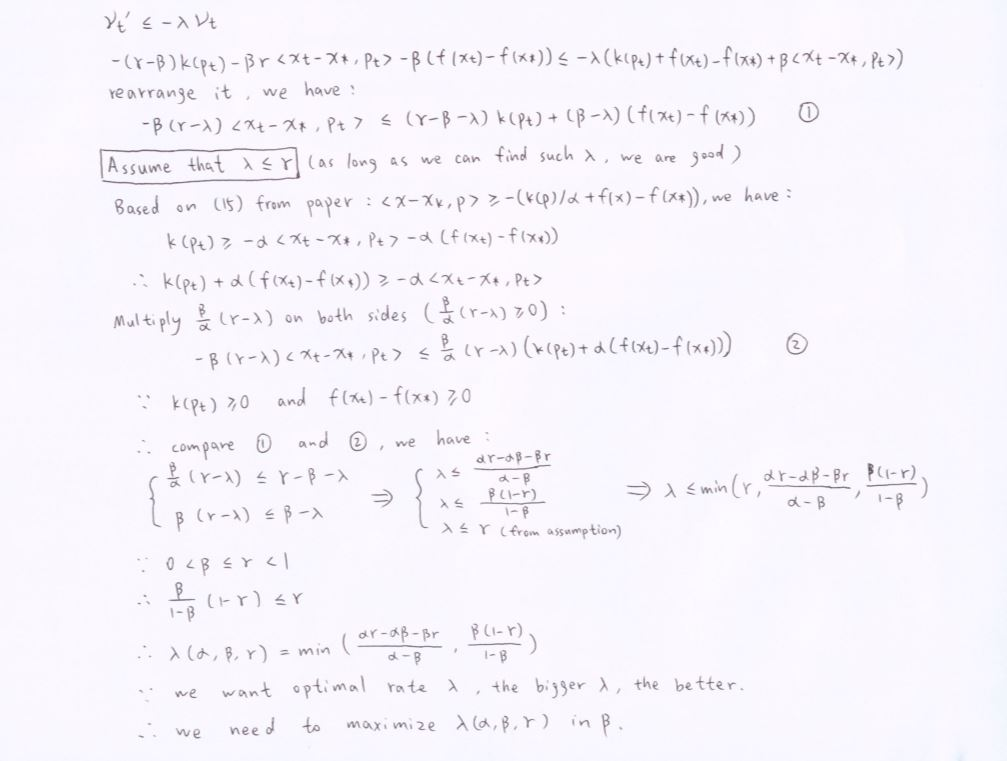 𝒱t' ≤ -λ𝒱t
-(γ-β)k(Pt) - βγ<xt-x*, Pt> - β(f(xt)-f(x*)) ≤ -λ(k(Pt)+f(xt)-f(x*)+β<xt-x*, Pt>)
rearrange it, we have:
-β(γ-λ)<xt-x*, Pt> ≤ (γ-β-λ)k(Pt)+(β-λ)(f(xt)-f(x*)) ①
Assume that λ≤γ (as long as we can find such λ, we are good)
Based on (15) from paper: <x-x*, p> ≥ -(k(p)/α+f(x)-f(x*)), we have:
k(Pt) ≥ -α<xt-x*, Pt> - α(f(xt)-f(x*))
∴ k(Pt)+α(f(xt)-f(x*)) ≥ -α<xt-x*, Pt>
Multiply β/α (γ-λ) on both sides (β/α (γ-λ) ≥ 0):
-β(γ-λ)<xt-x*, Pt> ≤ β/α (γ-λ)(k(Pt)+α(f(xt)-f(x*))) ②
∵ k(Pt) ≥ 0 and f(xt)-f(x*) ≥ 0
∴ compare ① and ②, we have:
{ β/α (γ-λ) ≤ γ-β-λ ⇒ { λ ≤ (αγ-αβ-βγ)/(α-β) ⇒ λ ≤ min(γ, (αγ-αβ-βγ)/(α-β), β(1-γ)/(1-β))
β(γ-λ) ≤ β-λ λ ≤ β(1-γ)/(1-β)
λ ≤ γ (from assumption)
∵ 0<β≤γ<1
∴ β/(1-β) (1-γ) ≤ γ
∴ λ(α, β, γ) = min((αγ-αβ-βγ)/(α-β), β(1-γ)/(1-β))
∵ we want optimal rate λ, the bigger λ, the better.
∴ we need to maximize λ(α, β, γ) in β.